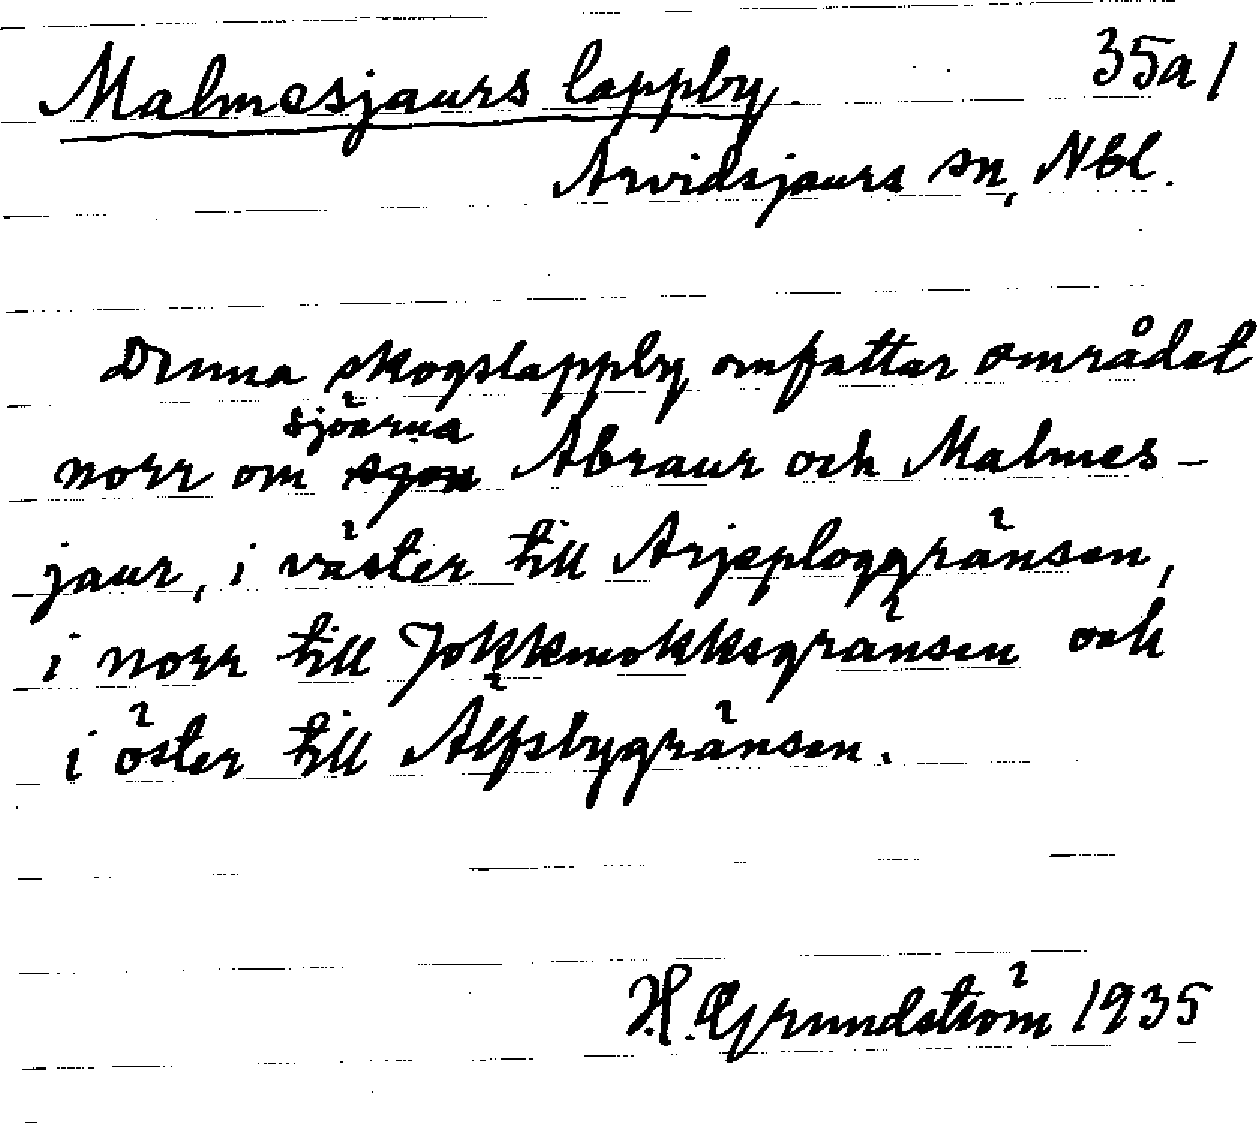 Malmesjaurs lappby. 35a1
Arvidsjaurs sn, Nbl.
Denna skogslappby omfattar området
sjöarna
norr om sjön Abraur och Malmes-
jaur, i väster till Arjeploggränsen,
i norr till Jokkmokksgränsen och
i öster till Älfsbygränsen.
H. Grundström 1935